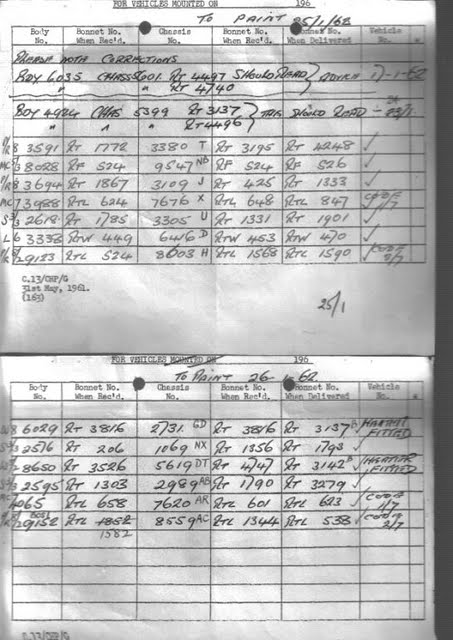 FOR VEHICLES MOUNTED ON 196
TO PAINT 25/1/62
Body No. Bonnet No. When Rec'd. Chassis No. Bonnet No. When Rec'd. Bonnet No. When Delivered Vehicle No.
PLEASE NOTE CORRECTIONS
BODY 6035 CHASS 8001 RT 4497 SHOULD READ ADVICE 17-1-62
" " RT 4740
BODY 4924 CHAS 5399 RT 3137 THIS SHOULD READ
" " " RT 4496
8 3591 RT 1772 3380 T RT 3195 RT 4248 ✓
8028 RF 524 9547 NB RF 524 RF 526 ✓
8 3694 RT 1867 3109 J RT 425 RT 1333 ✓
MC 7 3988 RTL 624 7676 X RTL 648 RTL 847 ✓
S 3/3 2618 RT 1785 3305 U RT 1331 RT 1901 ✓
L 6 3338 RTW 449 6416 D RTW 453 RTW 470 ✓
9123 RTL 524 8603 H RTL 1568 RTL 1590 ✓
C.13/CHP/G
31st May, 1961.
(163)
25/1
FOR VEHICLES MOUNTED ON 196
TO PAINT 26-1-62
Body No. Bonnet No. When Rec'd. Chassis No. Bonnet No. When Rec'd. Bonnet No. When Delivered Vehicle No.
8 6029 RT 3816 2731 GD RT 3816 RT 3137 ✓ HEATER FITTED
S 3/3 2576 RT 206 1069 NX RT 1356 RT 1793 ✓
8650 RT 3526 5619 DT RT 4147 RT 3142 ✓ HEATER FITTED
S 3/3 2595 RT 1303 2989 AB RT 1790 RT 3279 ✓
MC 7 4065 RTL 658 7620 AR RTL 601 RTL 623 ✓
9152 RTL 1852 8559 AC RTL 1344 RTL 538 ✓
1582
C.13/CHP/G